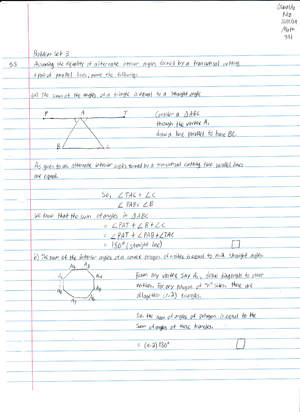 Problem Set 3
3.3 Assuming the equality of alternate interior angles formed by a transversal cutting
a pair of parallel lines, prove the following:
(a) The sum of the angles of a triangle is equal to a straight angle
P A T
Consider a △ABC
through the vertex A,
draw a line parallel to base BC.
B C
As given to us alternate interior angles formed by a transversal cutting two parallel lines
are equal.
So, ∠TAC = ∠C
∠PAB = ∠B
We know that the sum of angles in △ABC
= ∠A + ∠B + ∠C
= ∠A + ∠PAB + ∠TAC
= 180° (straight line)
b) The sum of the interior angles of a convex polygon of n sides is equal to n-2 straight angles.
From any vertex say A₁, draw diagonals to other
vertices. For any polygon of "n" sides, there are
altogether (n-2) triangles.
So, the sum of angles of polygon is equal to the
sum of angles of these triangles.
= (n-2) 180°